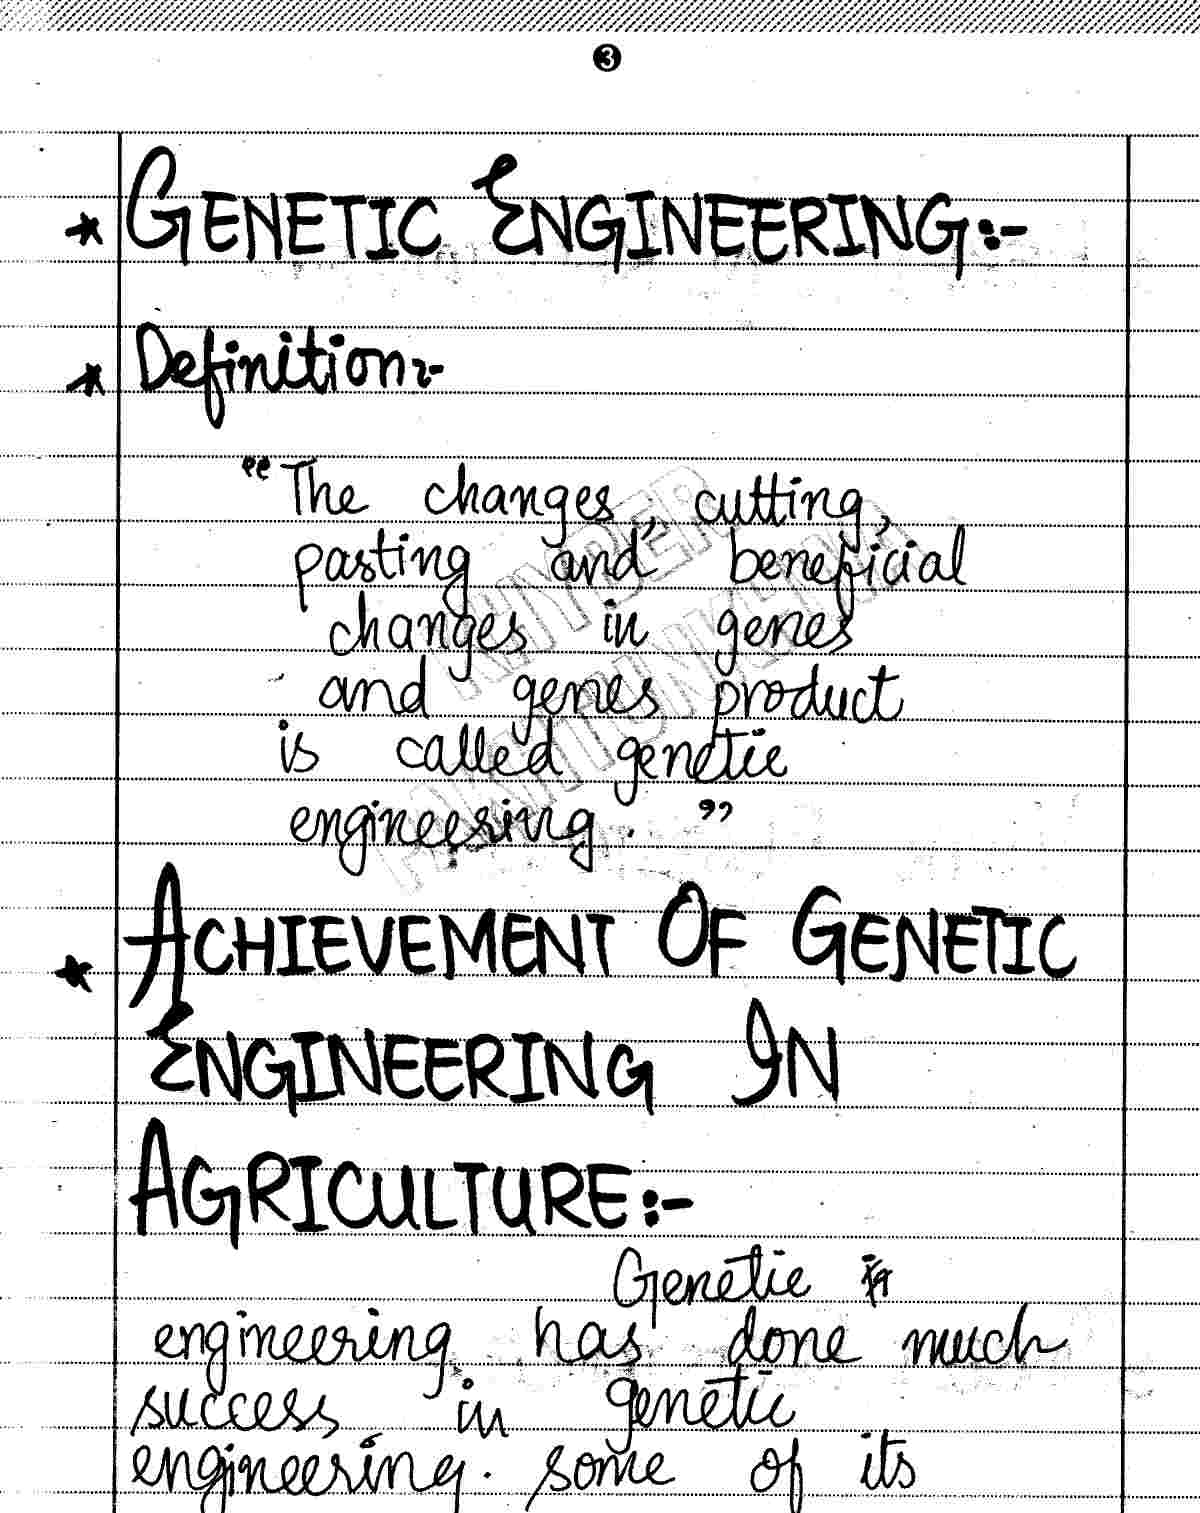 3
* GENETIC ENGINEERING:-
* Definition:-
"The changes, cutting,
pasting and beneficial
changes in genes
and genes product
is called genetic
engineering. "
* ACHIEVEMENT OF GENETIC
ENGINEERING IN
AGRICULTURE:-
Genetic
engineering has done much
success in genetic
engineering. some of its
KHYBER
PAKHTUNKHWA